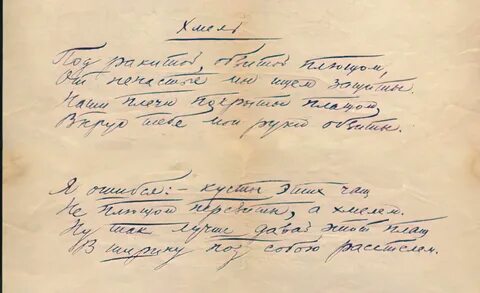 Хмель
Под ракитой, обвитой плющом,
От ненастья мы ищем защиты.
Наши плечи покрыты плащом,
Вкруг тебя мои руки обвиты.
Я ошибся: – кусты этих чащ
Не плющом перевиты, а хмелем.
Ну так лучше давай этот плащ
В ширину под собою расстелем.